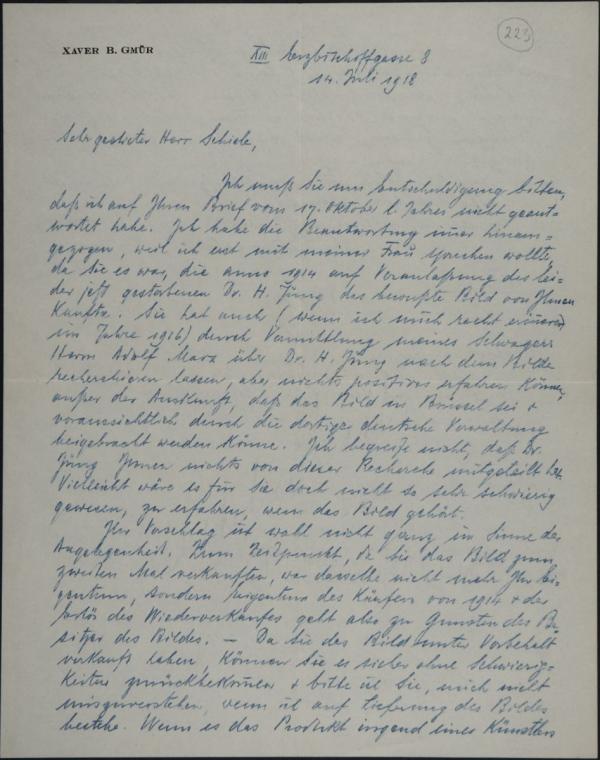 223
XAVER B. GMÜR
XIII Erzbischoffgasse 8
14. Juli 1918
Sehr geehrter Herr Schiele,
Ich muß Sie um Entschuldigung bitten,
daß ich auf Ihren Brief vom 17. Oktober l. Jahres nicht geant-
wortet habe. Ich habe die Beantwortung immer hinaus-
gezogen, weil ich erst mit meiner Frau sprechen wollte,
da sie es war, die anno 1914 auf Veranlaßung des lei-
der jetzt gestorbenen Dr. H. Jung das bewußte Bild von Ihnen
kaufte. Sie hat auch (wenn ich mich recht erinnere
im Jahre 1916) durch Vermittlung meines Schwagers
Herrn Adolf über Dr. H. Jung nach dem Bilde
recherchieren lassen, aber nichts positives erfahren können,
außer der Auskunft, daß das Bild in Brüssel sei +
voraussichtlich durch die dortige deutsche Verwaltung
beigebracht werden könne. Ich begreife nicht, daß Dr.
Jung Ihnen nichts von dieser Recherche mitgeteilt hat.
Vielleicht wäre es für Sie doch nicht so sehr schwierig
gewesen, zu erfahren, wem das Bild gehört.
Ihr Vorschlag ist wohl nicht ganz im Sinne der
Angelegenheit. Zum Zeitpunkt, da Sie das Bild zum
zweiten Mal verkauften, war dasselbe nicht mehr Ihr Ei-
gentum, sondern Eigentum des Käufers von 1914 + der
Erlös des Wiederverkaufes geht also zu Gunsten des Be-
sitzers des Bildes. – Da Sie das Bild unter Vorbehalt
verkauft haben, können Sie es sicher ohne Schwierig-
keiten zurückbekommen + bitte ich Sie, mich nicht
misszuverstehen, wenn ich auf Lieferung des Bildes
bestehe. Wenn es das Produkt irgend eines Künstlers